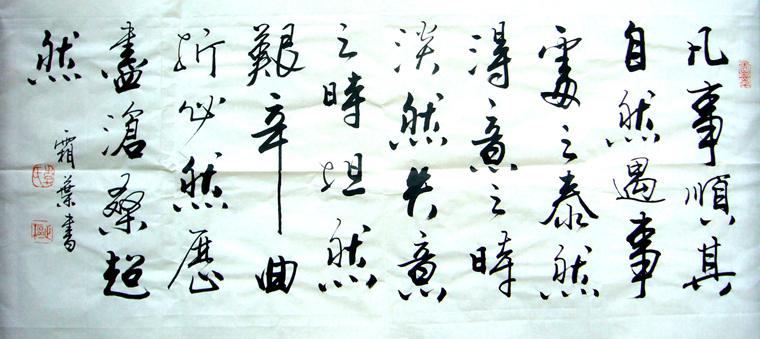 凡事順其
自然遇事
處之泰然
得意之時
淡然失意
之時坦然
艱辛曲
折必然歷
盡滄桑超
然
霜葉書